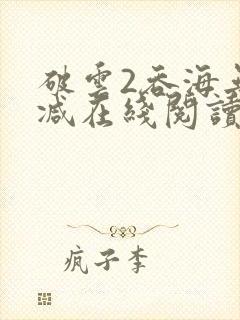 破雲2吞海無
減在綫閱讀
疯子李